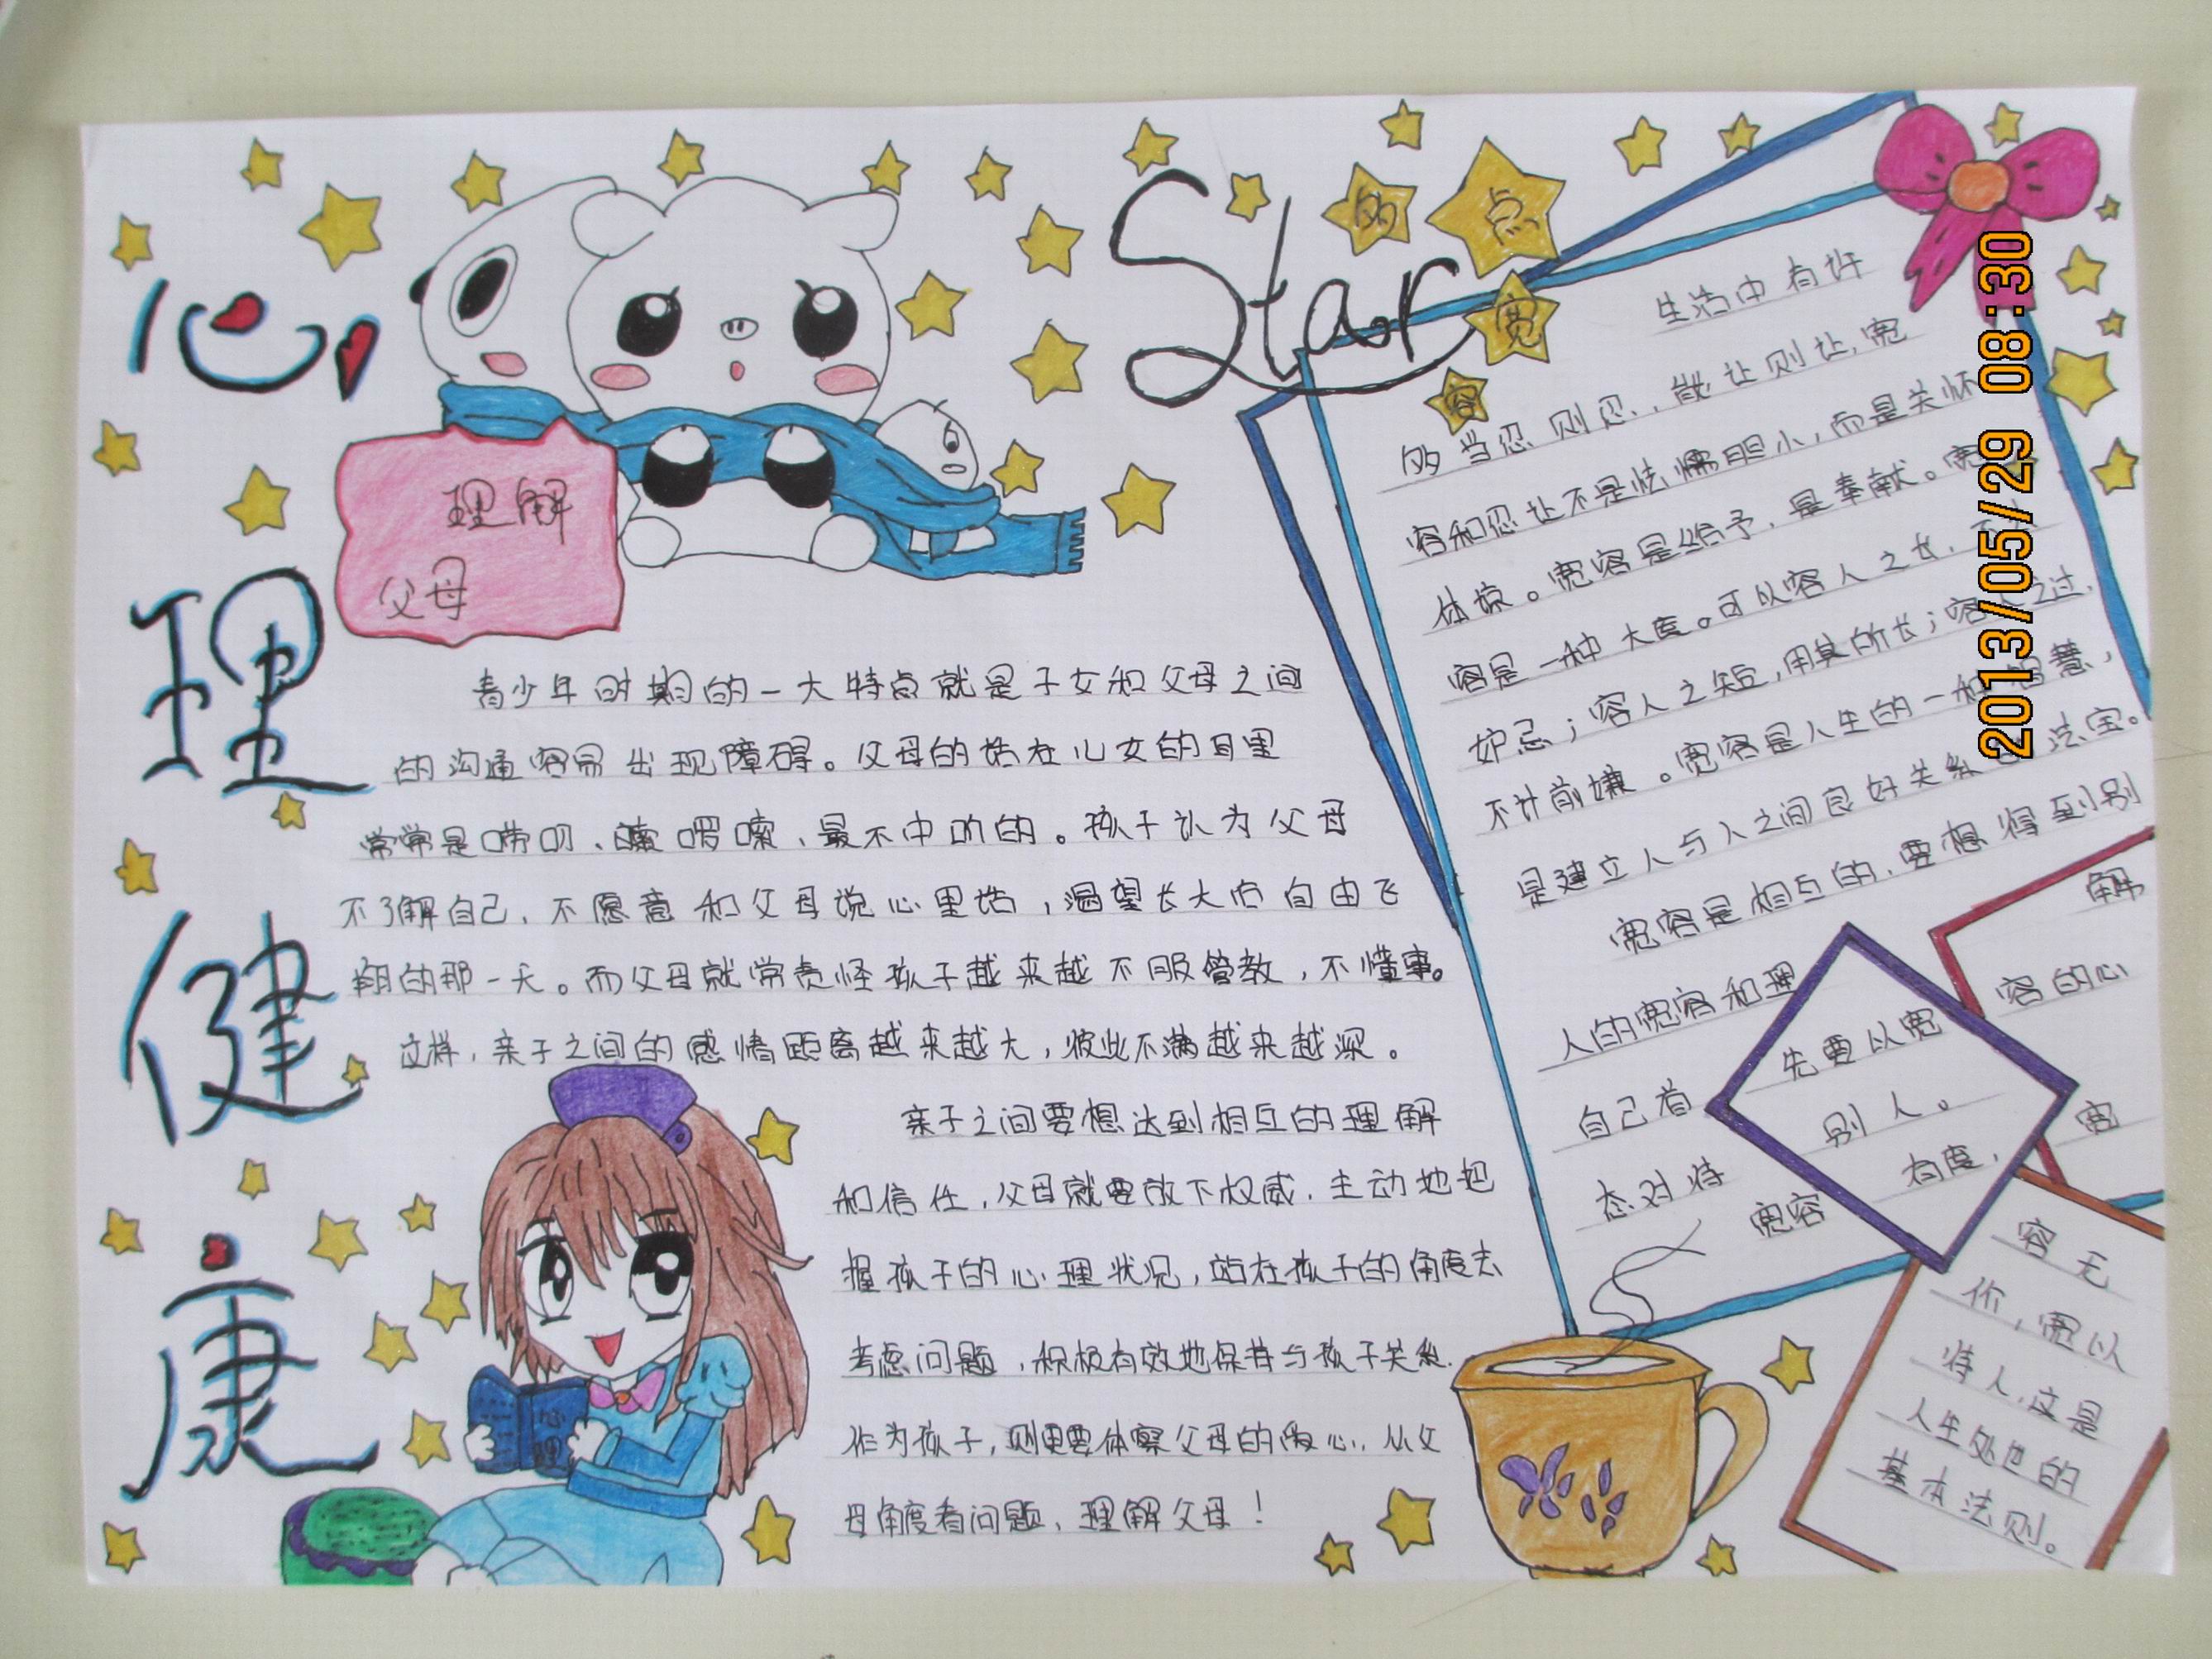 心
理
健
康
理解
父母
青少年时期的一大特点就是子女和父母之间
的沟通容易出现障碍。父母的话在儿女的耳里
常常是唠叨、啰嗦、最不中听的。孩子认为父母
不了解自己,不愿意和父母说心里话,渴望长大后自由飞
翔的那一天。而父母就常责怪孩子越来越不服管教,不懂事。
这样,亲子之间的感情距离越来越大,彼此不满越来越深。
亲子之间要想达到相互的理解
和信任,父母就要放下权威,主动地把
握孩子的心理状况,站在孩子的角度去
考虑问题,积极有效地保持与孩子关系.
作为孩子,则更要体察父母的爱心,从父
母角度看问题,理解父母!
心
理
Star
多
点
宽
容
生活中有许
多当忍则忍,能让则让,宽
容和忍让不是怯懦胆小,而是关怀
体谅。宽容是给予,是奉献。宽
容是一种大度。可以容人之长,不
妒忌;容人之短,用其所长;容人之过,
不计前嫌。宽容是人生的一种智慧,
是建立人与人之间良好关系 法宝。
宽容是相互的,要想得到别
人的宽容和理
解
自己首
先要以宽
容的心
态对待
别人。
宽容
有度,
宽
容无
价,宽以
待人,这是
人生处世的
基本法则。
2013/05/29 08:30